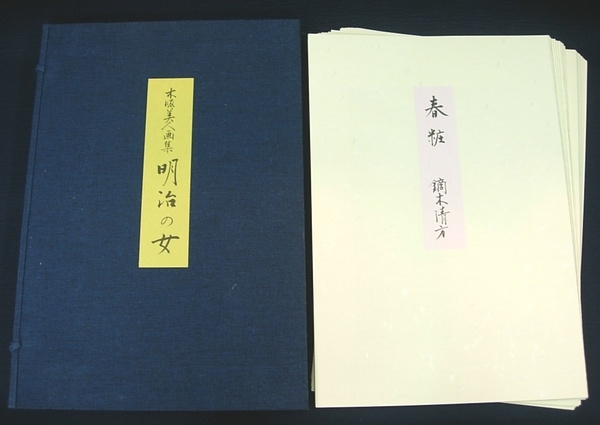 木版美人画集 明治の女
春粧 鏑木清方